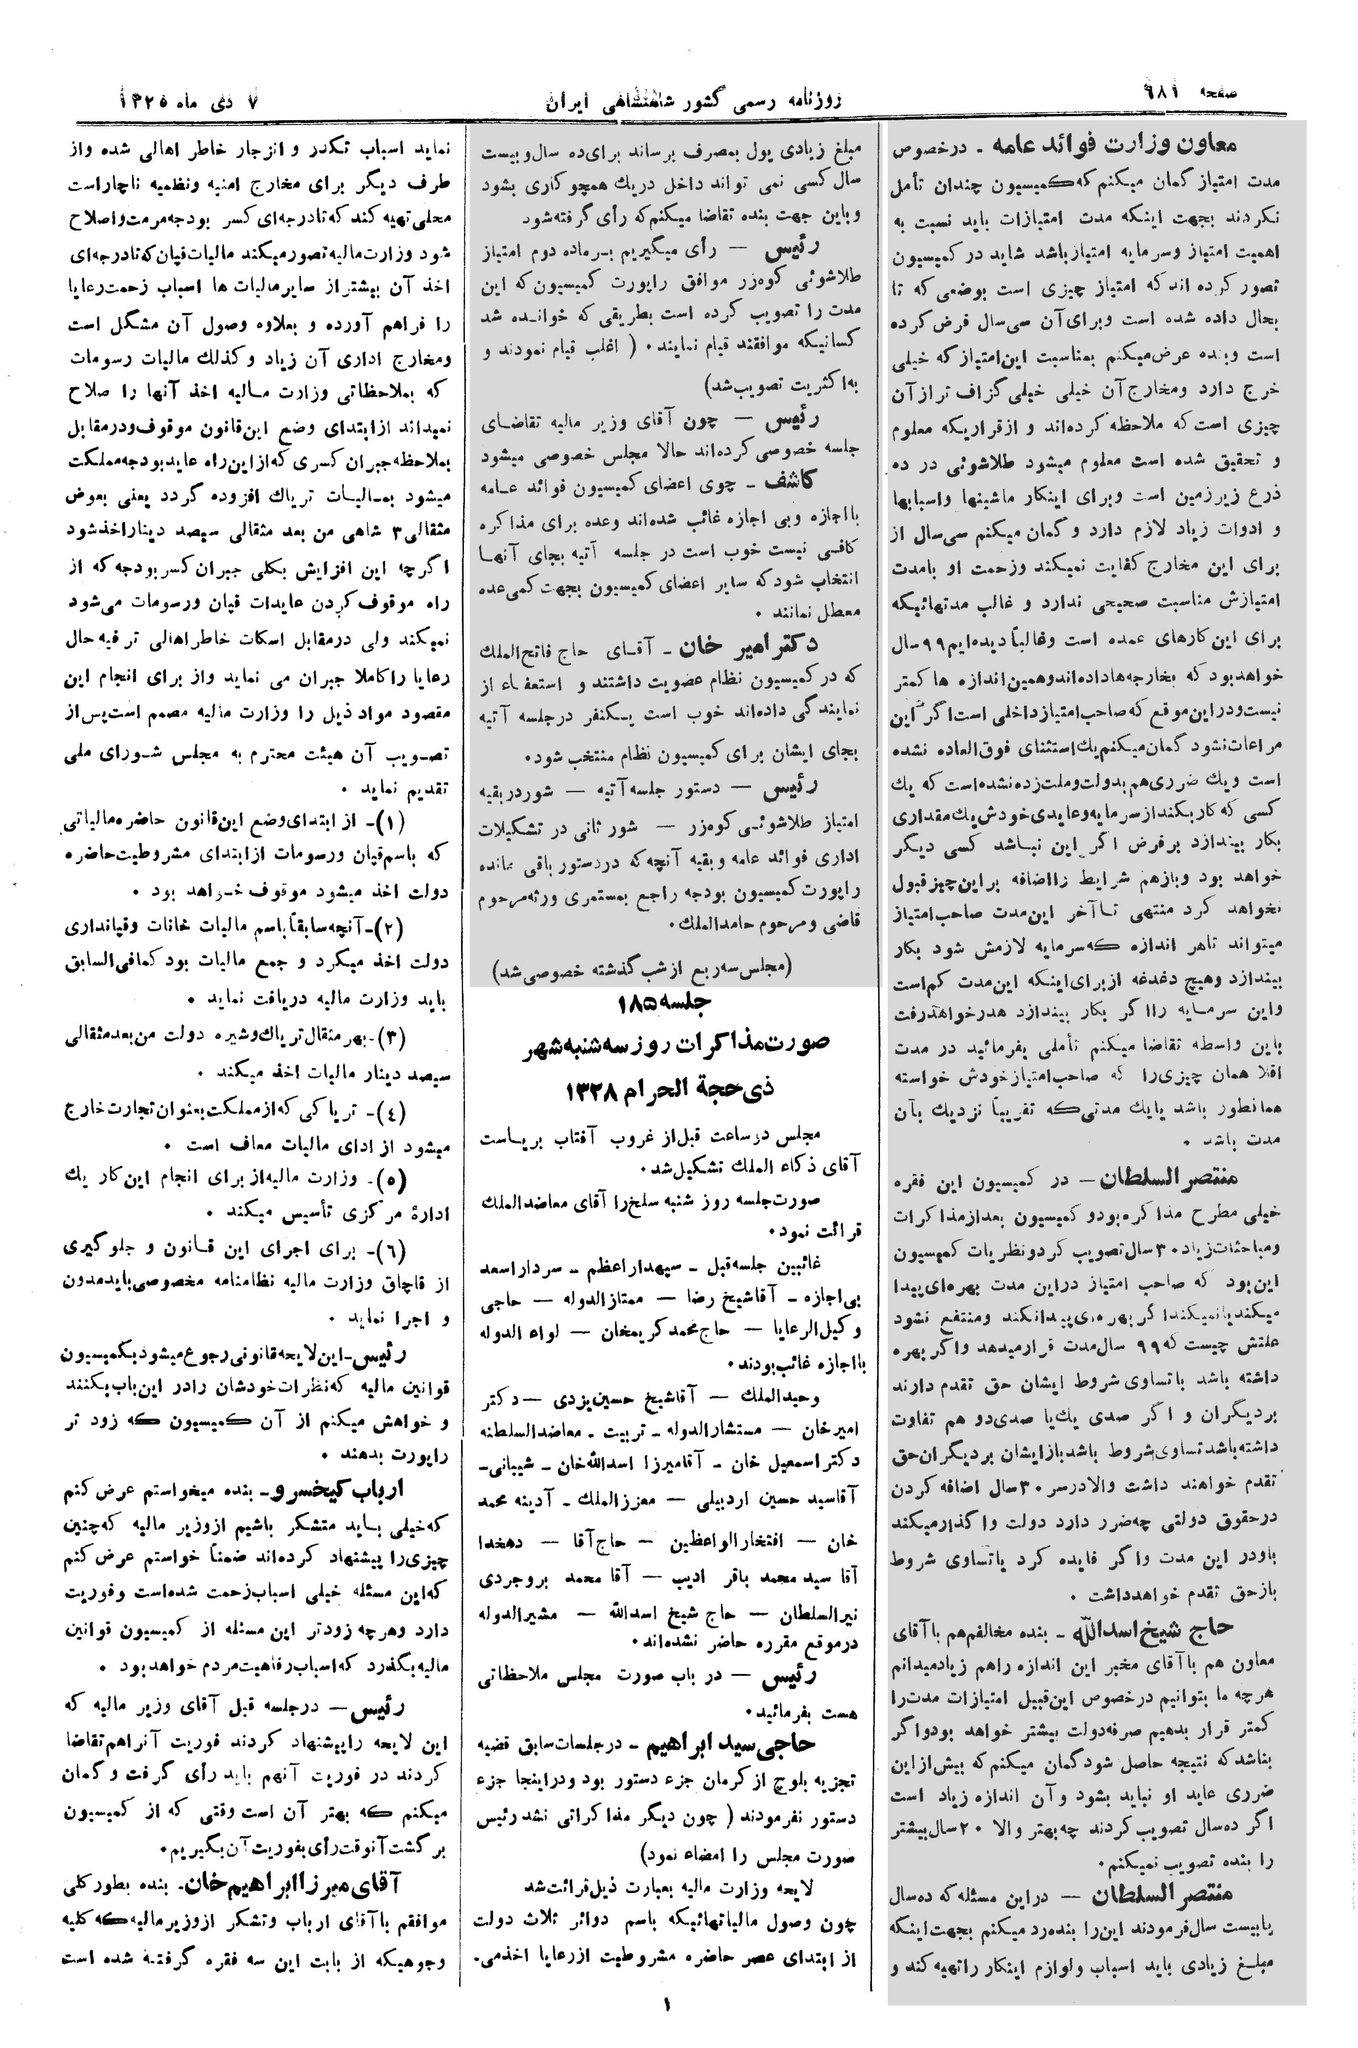 صفحه ۶۸۱
روزنامه رسمی کشور شاهنشاهی ایران
۷ دی ماه ۱۳۲۵
معاون وزارت فوائد عامه ـ درخصوص
مدت امتیاز گمان میکنم که کمیسیون چندان تأمل
نکردند بجهت اینکه مدت امتیازات باید نسبت به
اهمیت امتیاز وسرمایه امتیاز باشد شاید در کمیسیون
تصور کرده اند که امتیاز چیزی است بوضعی که تا
بحال داده شده است وبرای آن سی سال فرض کرده
است وبنده عرض میکنم بمناسبت این امتیاز که خیلی
خرج دارد ومخارج آن خیلی خیلی گزاف تر از آن
چیزی است که ملاحظه کرده اند و از قراریکه معلوم
و تحقیق شده است معلوم میشود طلاشوئی در ده
ذرع زیر زمین است وبرای اینکار ماشینها واسبابها
و ادوات زیاد لازم دارد و گمان میکنم سی سال از
برای این مخارج کفایت نمیکند وزحمت او بامدت
امتیازش مناسبت صحیحی ندارد و غالب مدتهائیکه
برای این کارهای عمده است وغالباً دیده ایم ۹۹ سال
خواهد بود که بخارجه ها داده اند وهمین اندازه ها کمتر
نیست ودراین موقع که صاحب امتیاز داخلی است اگر این
مراعات نشود گمان میکنم یك استثنای فوق العاده نشده
است ویك ضرری هم بدولت وملت زده نشده است که یك
کسی که کار بکند از سرمایه وعایدی خودش یك مقداری
بکار بیندازد برفرض اگر این نباشد کسی دیگر
خواهد بود وبازهم شرایط رااضافه براین چیز قبول
نخواهد کرد منتهی تا آخر این مدت صاحب امتیاز
میتواند تاهر اندازه که سرمایه لازمش شود بکار
بیندازد وهیچ دغدغه از برای اینکه این مدت کم است
واین سرمایه رااگر بکار بیندازد هدر خواهد رفت
باین واسطه تقاضا میکنم تأملی بفرمائید در مدت
اقلا همان چیزی را که صاحب امتیاز خودش خواسته
همانطور باشد یا یك مدتی که تقریباً نزدیك بآن
مدت باشد .
منتصر السلطان — در کمیسیون این فقره
خیلی مطرح مذاکره بود و کمیسیون بعداز مذاکرات
ومباحثات زیاد ۳۰ سال تصویب کرد ونظریات کمیسیون
این بود که صاحب امتیاز دراین مدت بهره ای پیدا
میکند یا نمیکند اگر بهره ی پیدانکند ومنتفع نشود
علتش چیست که ۹۹ سال مدت قرار میدهد واگر بهره
داشته باشد باتساوی شروط ایشان حق تقدم دارند
بردیگران و اگر صدی یك یا صدی دو هم تفاوت
داشته باشد تساوی شروط باشد باز ایشان بردیگران حق
تقدم خواهند داشت والا در سر ۳۰ سال اضافه کردن
در حقوق دولتی چه ضرر دارد دولت واگذار میکند
باو در این مدت واگر فایده کرد یا تساوی شروط
باز حق تقدم خواهد داشت .
حاج شیخ اسدالله ـ بنده مخالفم هم با آقای
معاون هم با آقای مخبر این اندازه راهم زیاد میدانم
هرچه ما بتوانیم درخصوص این قبیل امتیازات مدت را
کمتر قرار بدهیم صرفه دولت بیشتر خواهد بود واگر
بناشد که نتیجه حاصل شود گمان میکنم که بیش از این
ضرری عاید او نباید بشود و آن اندازه زیاد است
اگر ده سال تصویب کردند چه بهتر والا ۲۰ سال بیشتر
را بنده تصویب نمیکنم .
منتصر السلطان — دراین مسئله که ده سال
یا بیست سال فرمودند این را بنده رد میکنم بجهت اینکه
مبلغ زیادی باید اسباب ولوازم اینکار راتهیه کند و
مبلغ زیادی پول بمصرف برساند برای ده سال وبیست
سال کسی نمی تواند داخل دریك همچو کاری بشود
وباین جهت بنده تقاضا میکنم که رأی گرفته شود
رئیس — رأی میگیریم بـرماده دوم امتیاز
طلاشوئی کوه زر موافق راپورت کمیسیون که این
مدت را تصویب کرده است بطریقی که خوانده شد
کسانیکه موافقند قیام نمایند. ( اغلب قیام نمودند و
به اکثریت تصویب شد)
رئیس — چون آقای وزیر مالیه تقاضای
جلسه خصوصی کرده اند حالا مجلس خصوصی میشود
کاشف ـ چوی اعضای کمیسیون فوائد عامه
بااجازه وبی اجازه غائب شده اند وعده برای مذاکره
کافی نیست خوب است در جلسه آتیه بجای آنها
انتخاب شود که سایر اعضای کمیسیون بجهت کمی عده
معطل نمانند .
دکتر امیر خان ـ آقای حاج فاتح الملك
که در کمیسیون نظام عضویت داشتند و استعفاء از
نمایندگی داده اند خوب است یکنفر درجلسه آتیه
بجای ایشان برای کمیسیون نظام منتخب شود.
رئیس — دستور جلسه آتیه — شور در بقیه
امتیاز طلاشوئی کوه زر — شور ثانی در تشکیلات
اداری فوائد عامه وبقیه آنچه که دردستور باقی مانده
راپورت کمیسیون بودجه راجع بمستمری ورثه مرحوم
قاضی ومرحوم حامد الملك.
(مجلس سه ربع از شب گذشته خصوصی شد)
جلسه ۱۸۵
صورت مذاکرات روز سه شنبه شهر
ذی حجة الحرام ۱۳۲۸
مجلس در ساعت قبل از غروب آفتاب بریاست
آقای ذکاء الملك تشکیل شد.
صورت جلسه روز شنبه سلخ را آقای معاضد الملك
قرائت نمود.
غائبین جلسه قبل ـ سپهدار اعظم ـ سردار اسعد
بی اجازه ـ آقاشیخ رضا — ممتاز الدوله — حاجی
وکیل الرعایا — حاج محمد کریمخان — لواء الدوله
بااجازه غائب بودند.
وحید الملك — آقاشیخ حسین یزدی — دکتر
امیر خان — مستشار الدوله ـ تربیت ـ معاضد السلطنه
دکتر اسمعیل خان ـ آقامیرزا اسدالله خان ـ شیبانی ـ
آقا سید حسین اردبیلی — معزز الملك ـ آدینه محمد
خان — افتخار الواعظین — حاج آقا — دهخدا
آقا سید محمد باقر ادیب — آقا محمد بروجردی
نیر السلطان — حاج شیخ اسدالله — مشیر الدوله
درموقع مقرره حاضر نشده اند.
رئیس — در باب صورت مجلس ملاحظاتی
هست بفرمائید.
حاجی سید ابراهیم ـ درجلسات سابق قضیه
تجزیه بلوچ از کرمان جزء دستور بود ودراینجا جزء
دستور نفرمودند ( چون دیگر مذاکراتی نشد رئیس
صورت مجلس را امضاء نمود)
لایحه وزارت مالیه بعبارت ذیل قرائت شد
چون وصول مالیاتهائیکه باسم دوائر ثلاث دولت
از ابتدای عصر حاضره مشروطیت از رعایا اخذ می-
نماید اسباب تکدر و انزجار خاطر اهالی شده واز
طرف دیگر برای مخارج امنیه ونظمیه ناچار است
محلی تهیه کند که تادرجه ای کسر بودجه مرمت واصلاح
شود وزارت مالیه تصور میکند مالیات قپان که تادرجه ای
اخذ آن بیشتر از سایر مالیات ها اسباب زحمت رعایا
را فراهم آورده و بعلاوه وصول آن مشگل است
ومخارج اداری آن زیاد و کذلك مالیات رسومات
که بملاحظاتی وزارت مالیه اخذ آنها را صلاح
نمیداند از ابتدای وضع این قانون موقوف ودر مقابل
بملاحظه جبران کسری که از این راه عاید بودجه مملکت
میشود بمـالیات تریاك افزوده گردد یعنی بعوض
مثقالی ۳ شاهی من بعد مثقالی سیصد دینار اخذ شود
اگرچه این افزایش بکلی جبران کسر بودجه که از
راه موقوف کردن عایدات قپان ورسومات می شود
نمیکند ولی درمقابل اسکات خاطر اهالی ترفیه حال
رعایا را کاملا جبران می نماید واز برای انجام این
مقصود مواد ذیل را وزارت مالیه مصمم است پس از
تصویب آن هیئت محترم به مجلس شورای ملی
تقدیم نماید .
(۱)ـ از ابتدای وضع این قانون حاضره مالیاتی
که باسم قپان ورسومات از ابتدای مشروطیت حاضره
دولت اخذ میشود موقوف خواهد بود .
(۲)ـ آنچه سابقاً باسم مالیات خانات وقپانداری
دولت اخذ میگرد و جمع مالیات بود کمافی السابق
باید وزارت مالیه دریافت نماید .
(۳)ـ بهر مثقال تریاك وشیره دولت من بعد مثقالی
سیصد دینار مالیات اخذ میکند .
(٤)ـ تریاکی که از مملکت بعنوان تجارت خارج
میشود از ادای مالیات معاف است .
(۵)ـ وزارت مالیه از برای انجام این کار یك
ادارۀ مرکزی تأسیس میکند .
(٦)ـ برای اجرای این قانون و جلوگیری
از قاچاق وزارت مالیه نظامنامه مخصوصی باید مدون
و اجرا نماید .
رئیس ـ این لایحه قانونی رجوع میشود بکمیسیون
قوانین مالیه که نظرات خودشان رادر این باب بکنند
و خواهش میکنم از آن کمیسیون که زود تر
راپورت بدهند .
ارباب کیخسرو ـ بنده میخواستم عرض کنم
که خیلی باید متشکر باشیم از وزیر مالیه که چنین
چیزی را پیشنهاد کرده اند ضمناً خواستم عرض کنم
که این مسئله خیلی اسباب زحمت شده است وفوریت
دارد وهرچه زودتر این مسئله از کمیسیون قوانین
مالیه بگذرد که اسباب رفاهیت مردم خواهد بود .
رئیس — درجلسه قبل آقای وزیر مالیه که
این لایحه راپیشنهاد کردند فوریت آنراهم تقاضا
کردند در فوریت آنهم باید رأی گرفت و گمان
میکنم که بهتر آن است وقتی که از کمیسیون
برگشت آنوقت رأی بفوریت آن بگیریم.
آقای میرزا ابراهیم خان ـ بنده بطور کلی
موافقم با آقای ارباب وتشکر از وزیر مالیه که کلیه
وجوهیکه از بابت این سه فقره گرفته شده است
۱